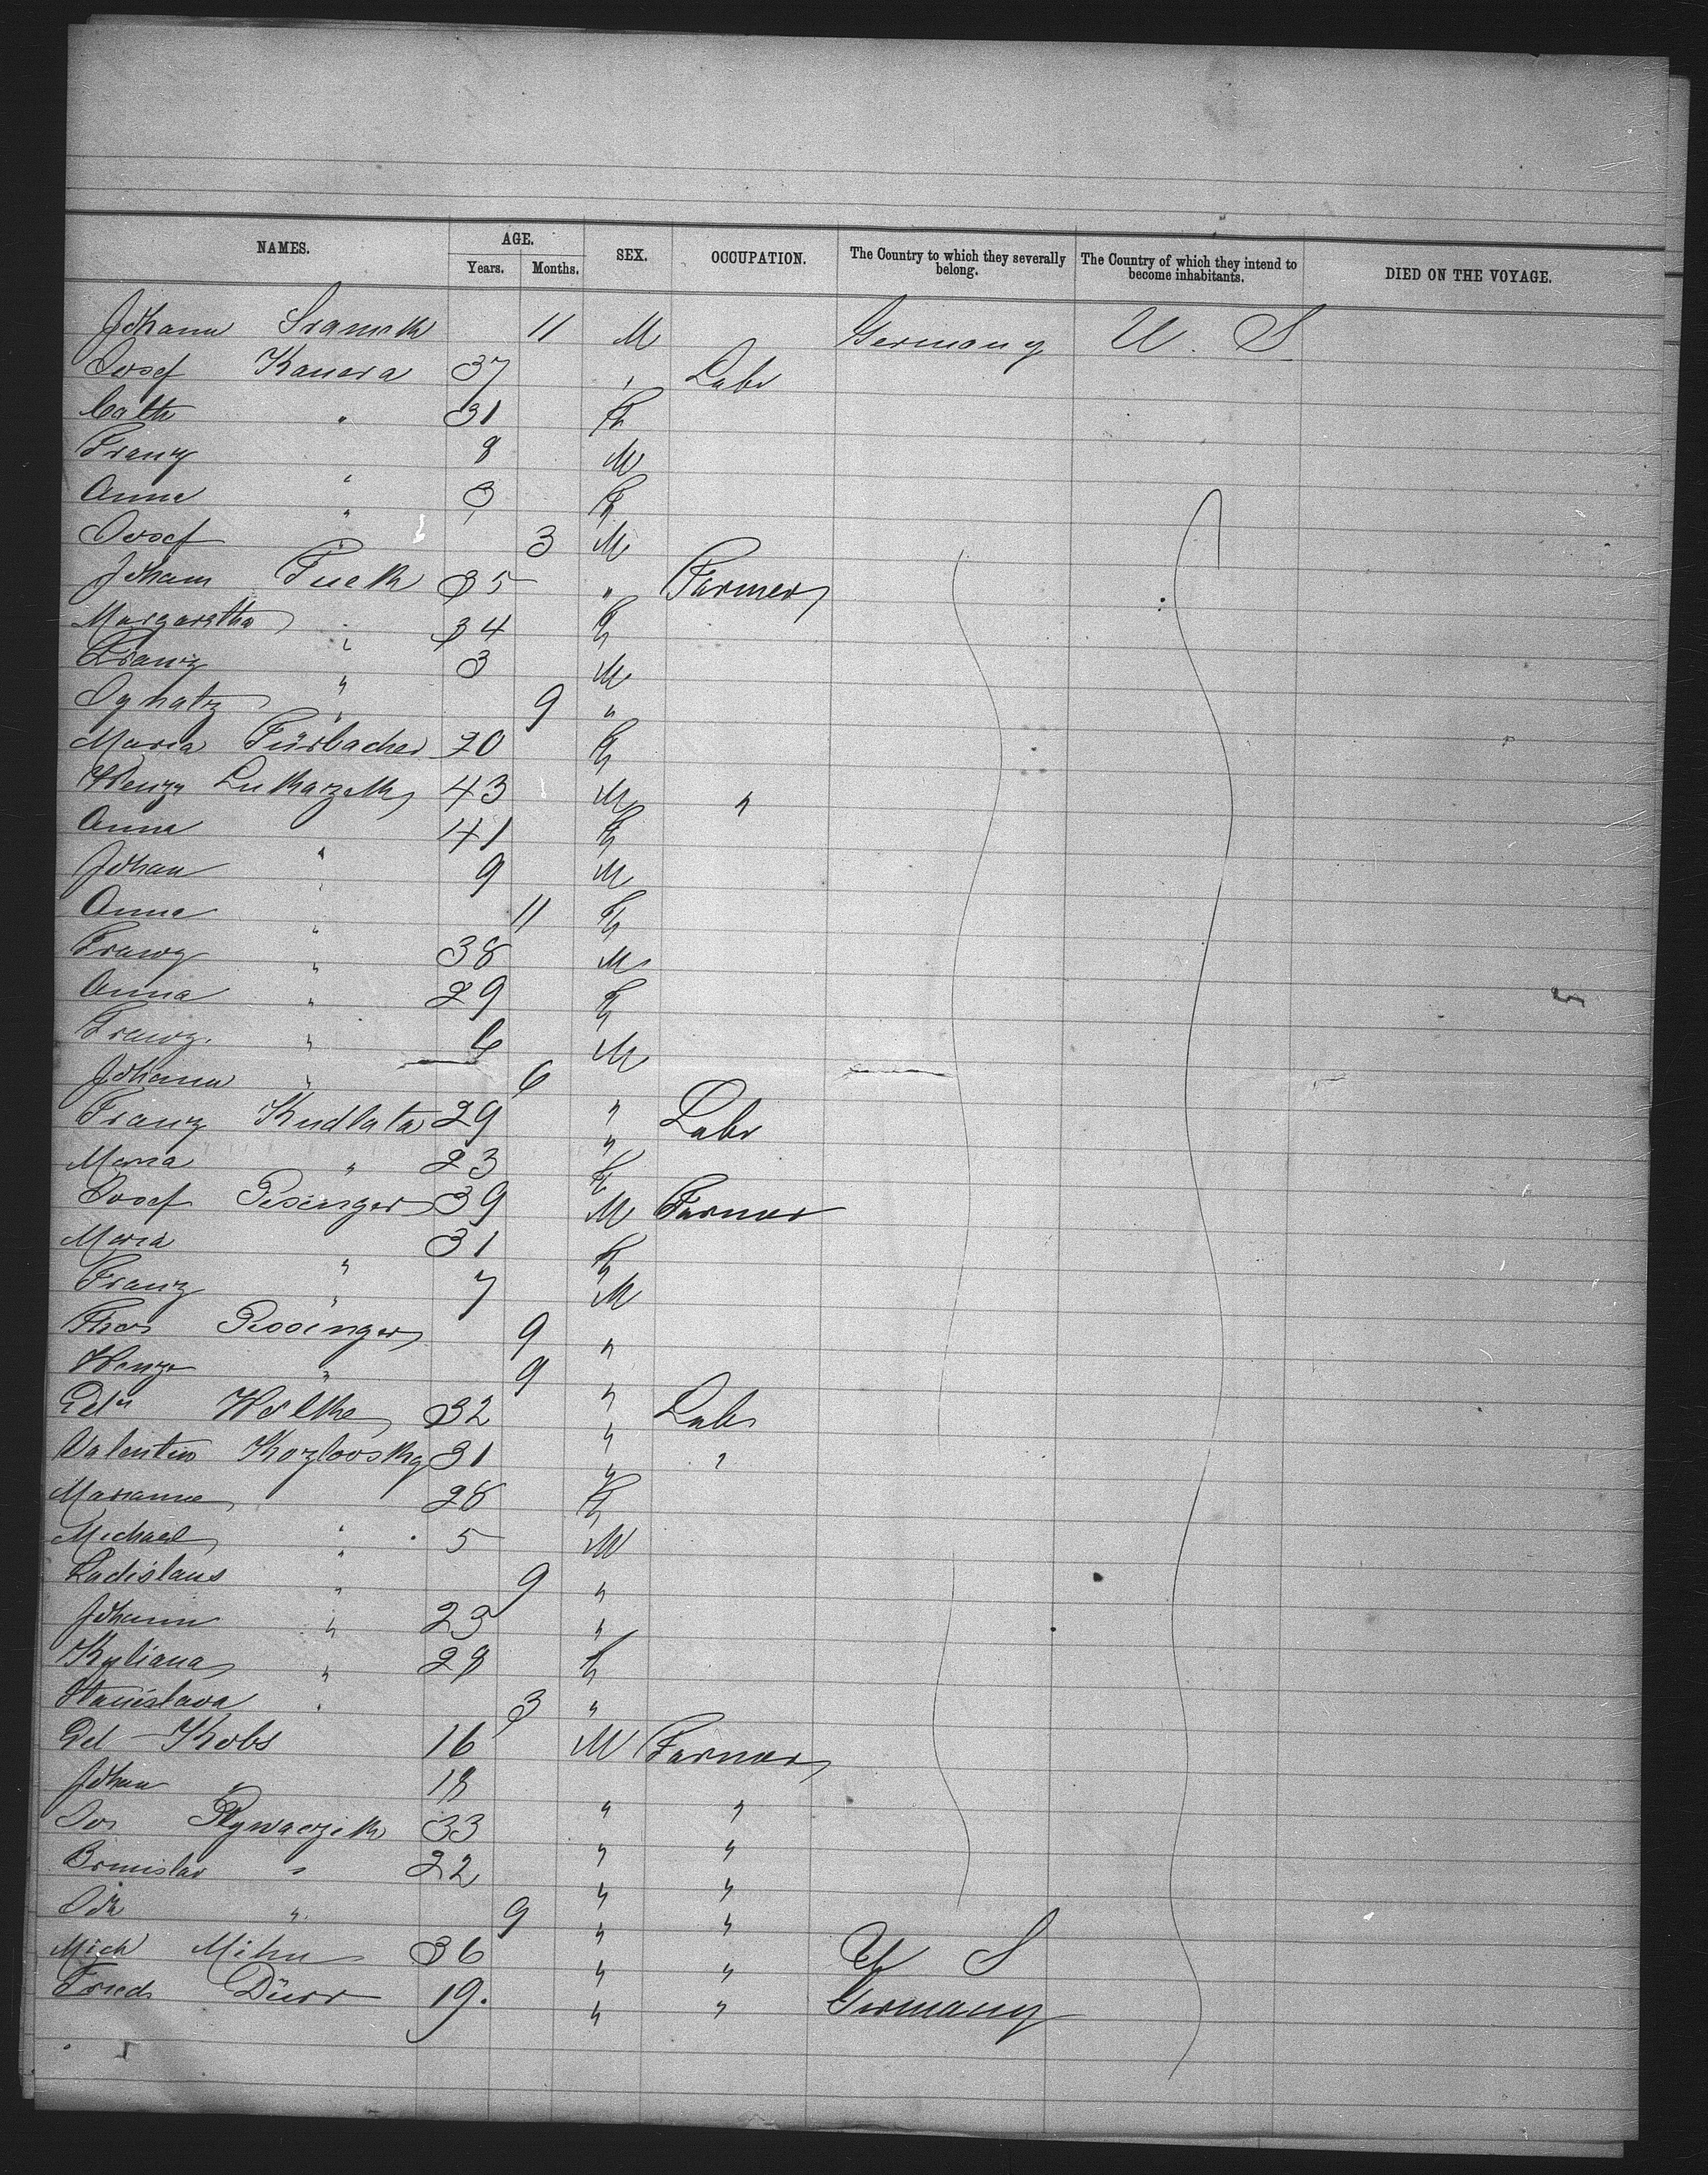 NAMES. AGE. SEX. OCCUPATION. The Country to which they severally belong. The Country of which they intend to become inhabitants. DIED ON THE VOYAGE.
Years. Months.
Johann Sramek 11 M Germany U. S
Josef Kanera 37 " Labr
Cath " 31 F
Franz " 8 M
Anna " 3 F
Josef " 3 M
Johann Tuek 35 " Farmer
Margaretha " 34 F
Franz " 3 M
Ignatz " 9 "
Maria Fürbacher 20 F
Wenzz Lukazek 43 M "
Anna " 41 F
Johan " 9 M
Anna " 11 F
Franz " 38 M
Anna " 29 F
Franz. " 6 M
Johann " 6 "
Franz Kudlata 29 " Labr
Maria " 23 F
Josef Pesinger 39 M Farmer
Maria " 31 F
Franz " 7 M
Thos Possinger 9 "
Wenzz " 9 "
Edu Wilke 32 " Labr
Valentin Kozlovsky 31 " "
Marianne " 28 F
Michael " 5 M
Ladislaus " 9 "
Johann " 23 "
" 28 F
Stanislava " 3 "
Ed Kobs 16 M Farmer
Johan " 18 " "
Jos Plywaczik 33 " "
" 22 " "
" 9 " "
Mich Mihu 36 " " U S
Fried Dürr 19. " " Germany